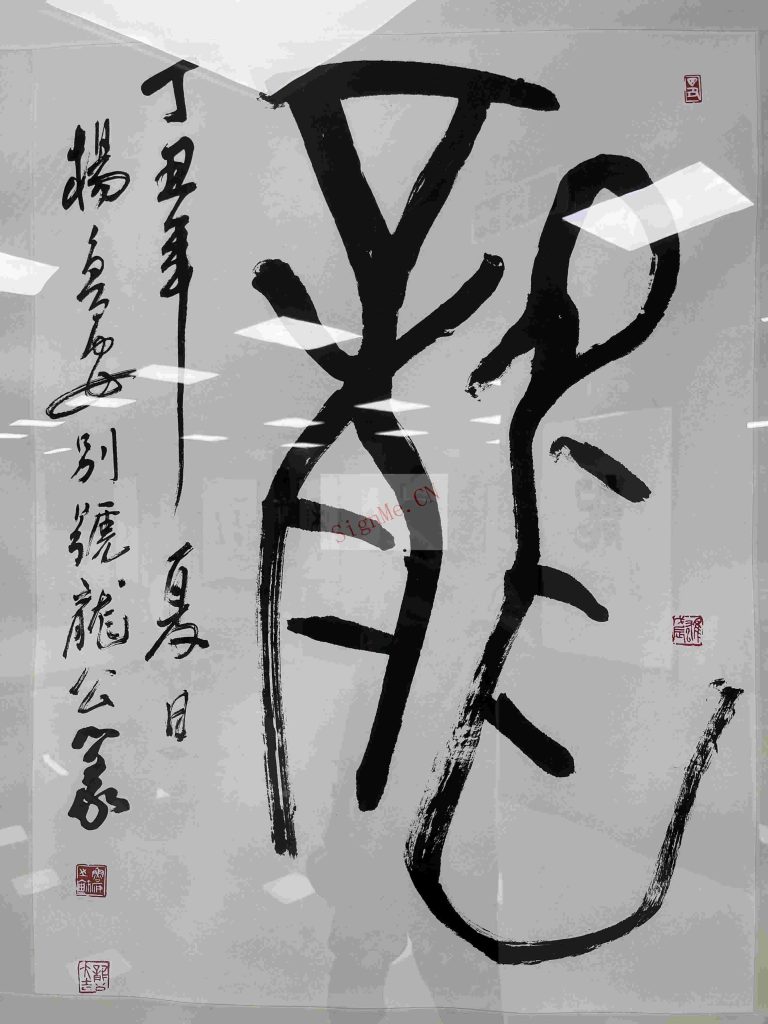 龍
丁丑年夏日
楊魯安別號龍公篆
SignMe.CN